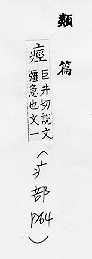 類篇
痙
巨井切說文
彊急也文一
(疒部P64)